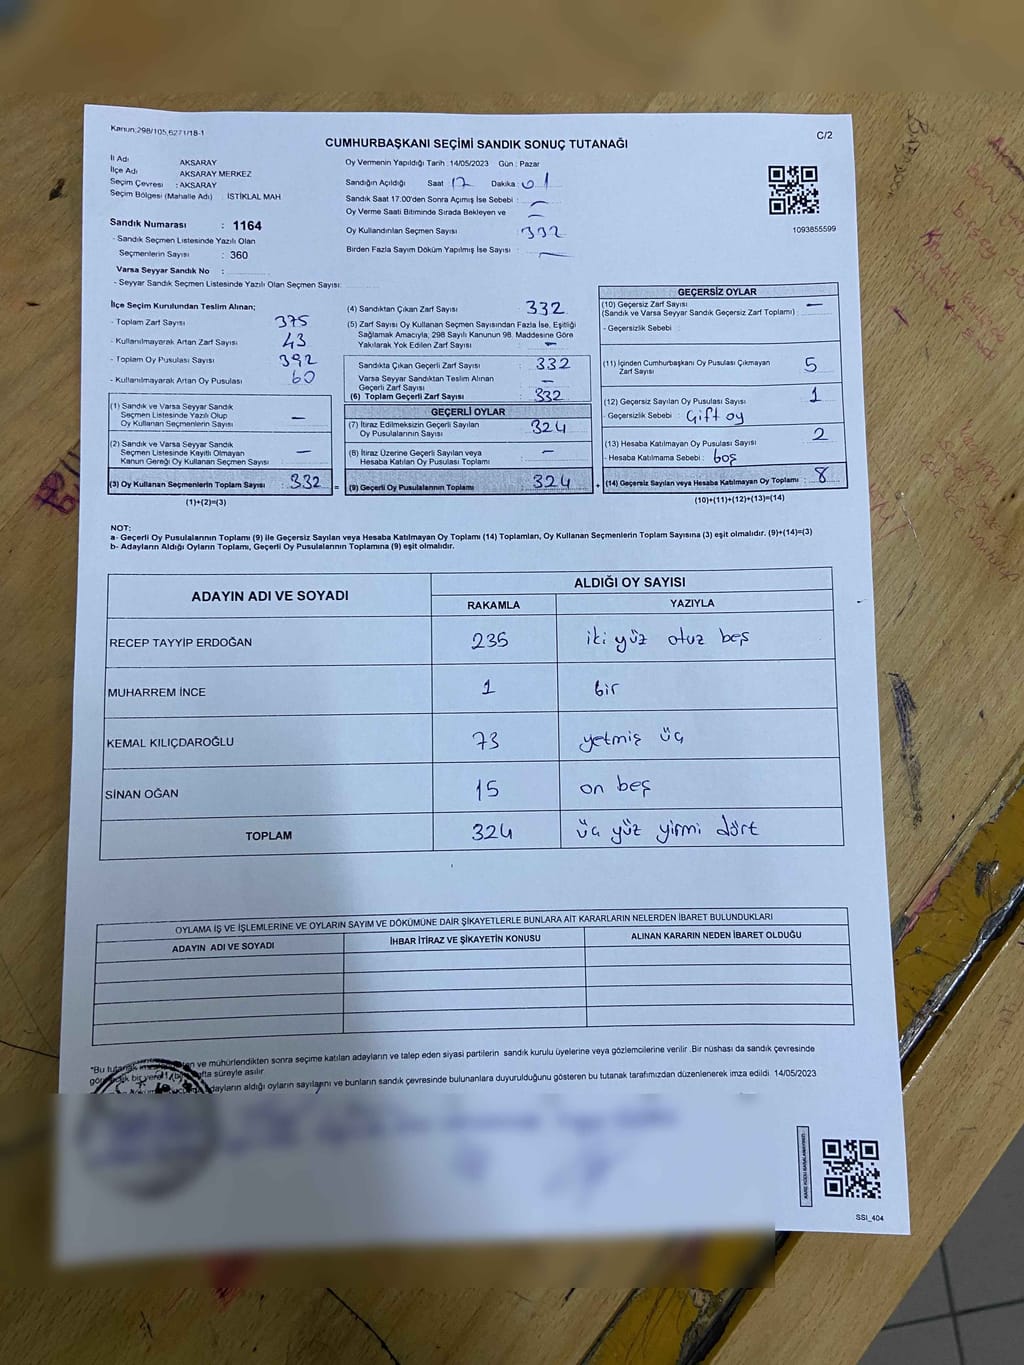 Kanun:298/105,6271/18-1
C/2
CUMHURBAŞKANI SEÇİMİ SANDIK SONUÇ TUTANAĞI
İl Adı AKSARAY
İlçe Adı AKSARAY MERKEZ
Seçim Çevresi : AKSARAY
Seçim Bölgesi (Mahalle Adı) İSTİKLAL MAH
Sandık Numarası : 1164
- Sandık Seçmen Listesinde Yazılı Olan
Seçmenlerin Sayısı : 360
Varsa Seyyar Sandık No :
- Seyyar Sandık Seçmen Listesinde Yazılı Olan Seçmen Sayısı:
Oy Vermenin Yapıldığı Tarih : 14/05/2023 Gün : Pazar
Sandığın Açıldığı Saat 17 Dakika 01
Sandık Saat 17:00'den Sonra Açımış İse Sebebi : —
Oy Verme Saati Bitiminde Sırada Bekleyen ve —
Oy Kullandırılan Seçmen Sayısı 332
Birden Fazla Sayım Döküm Yapılmış İse Sayısı : —
1093855599
İlçe Seçim Kurulundan Teslim Alınan;
- Toplam Zarf Sayısı 375
- Kullanılmayarak Artan Zarf Sayısı 43
- Toplam Oy Pusulası Sayısı 392
- Kullanılmayarak Artan Oy Pusulası 60
(1) Sandık ve Varsa Seyyar Sandık
Seçmen Listesinde Yazılı Olup
Oy Kullanan Seçmenlerin Sayısı —
(2) Sandık ve Varsa Seyyar Sandık
Seçmen Listesinde Kayıtlı Olmayan
Kanun Gereği Oy Kullanan Seçmen Sayısı —
(3) Oy Kullanan Seçmenlerin Toplam Sayısı : 332 =
(1)+(2)=(3)
(4) Sandıktan Çıkan Zarf Sayısı 332
(5) Zarf Sayısı Oy Kullanan Seçmen Sayısından Fazla İse, Eşitliği
Sağlamak Amacıyla, 298 Sayılı Kanunun 98. Maddesine Göre
Yakılarak Yok Edilen Zarf Sayısı —
Sandıkta Çıkan Geçerli Zarf Sayısı : 332
Varsa Seyyar Sandıktan Teslim Alınan
Geçerli Zarf Sayısı —
(6) Toplam Geçerli Zarf Sayısı : 332
GEÇERLİ OYLAR
(7) İtiraz Edilmeksizin Geçerli Sayılan
Oy Pusulalarının Sayısı 324
(8) İtiraz Üzerine Geçerli Sayılan veya
Hesaba Katılan Oy Pusulası Toplamı —
(9) Geçerli Oy Pusulalarının Toplamı 324 +
GEÇERSİZ OYLAR
(10) Geçersiz Zarf Sayısı —
(Sandık ve Varsa Seyyar Sandık Geçersiz Zarf Toplamı)
- Geçersizlik Sebebi :
(11) İçinden Cumhurbaşkanı Oy Pusulası Çıkmayan
Zarf Sayısı 5
(12) Geçersiz Sayılan Oy Pusulası Sayısı 1
- Geçersizlik Sebebi : Çift oy
(13) Hesaba Katılmayan Oy Pusulası Sayısı 2
- Hesaba Katılmama Sebebi : boş
(14) Geçersiz Sayılan veya Hesaba Katılmayan Oy Toplamı : 8
(10)+(11)+(12)+(13)=(14)
NOT:
a- Geçerli Oy Pusulalarının Toplamı (9) ile Geçersiz Sayılan veya Hesaba Katılmayan Oy Toplamı (14) Toplamları, Oy Kullanan Seçmenlerin Toplam Sayısına (3) eşit olmalıdır. (9)+(14)=(3)
b- Adayların Aldığı Oyların Toplamı, Geçerli Oy Pusulalarının Toplamına (9) eşit olmalıdır.
ADAYIN ADI VE SOYADI ALDIĞI OY SAYISI
RAKAMLA YAZIYLA
RECEP TAYYİP ERDOĞAN 235 iki yüz otuz beş
MUHARREM İNCE 1 bir
KEMAL KILIÇDAROĞLU 73 yetmiş üç
SİNAN OĞAN 15 on beş
TOPLAM 324 üç yüz yirmi dört
OYLAMA İŞ VE İŞLEMLERİNE VE OYLARIN SAYIM VE DÖKÜMÜNE DAİR ŞİKAYETLERLE BUNLARA AİT KARARLARIN NELERDEN İBARET BULUNDUKLARI
ADAYIN ADI VE SOYADI İHBAR İTİRAZ VE ŞİKAYETİN KONUSU ALINAN KARARIN NEDEN İBARET OLDUĞU
"Bu ve mühürlendikten sonra seçime katılan adayların ve talep eden siyasi partilerin sandık kurulu üyelerine veya gözlemcilerine verilir. Bir nüshası da sandık çevresinde
bir süreyle asılır.
adayların aldığı oyların sayılarını ve bunların sandık çevresinde bulunanlara duyurulduğunu gösteren bu tutanak tarafımızdan düzenlenerek imza edildi. 14/05/2023
SSI_404